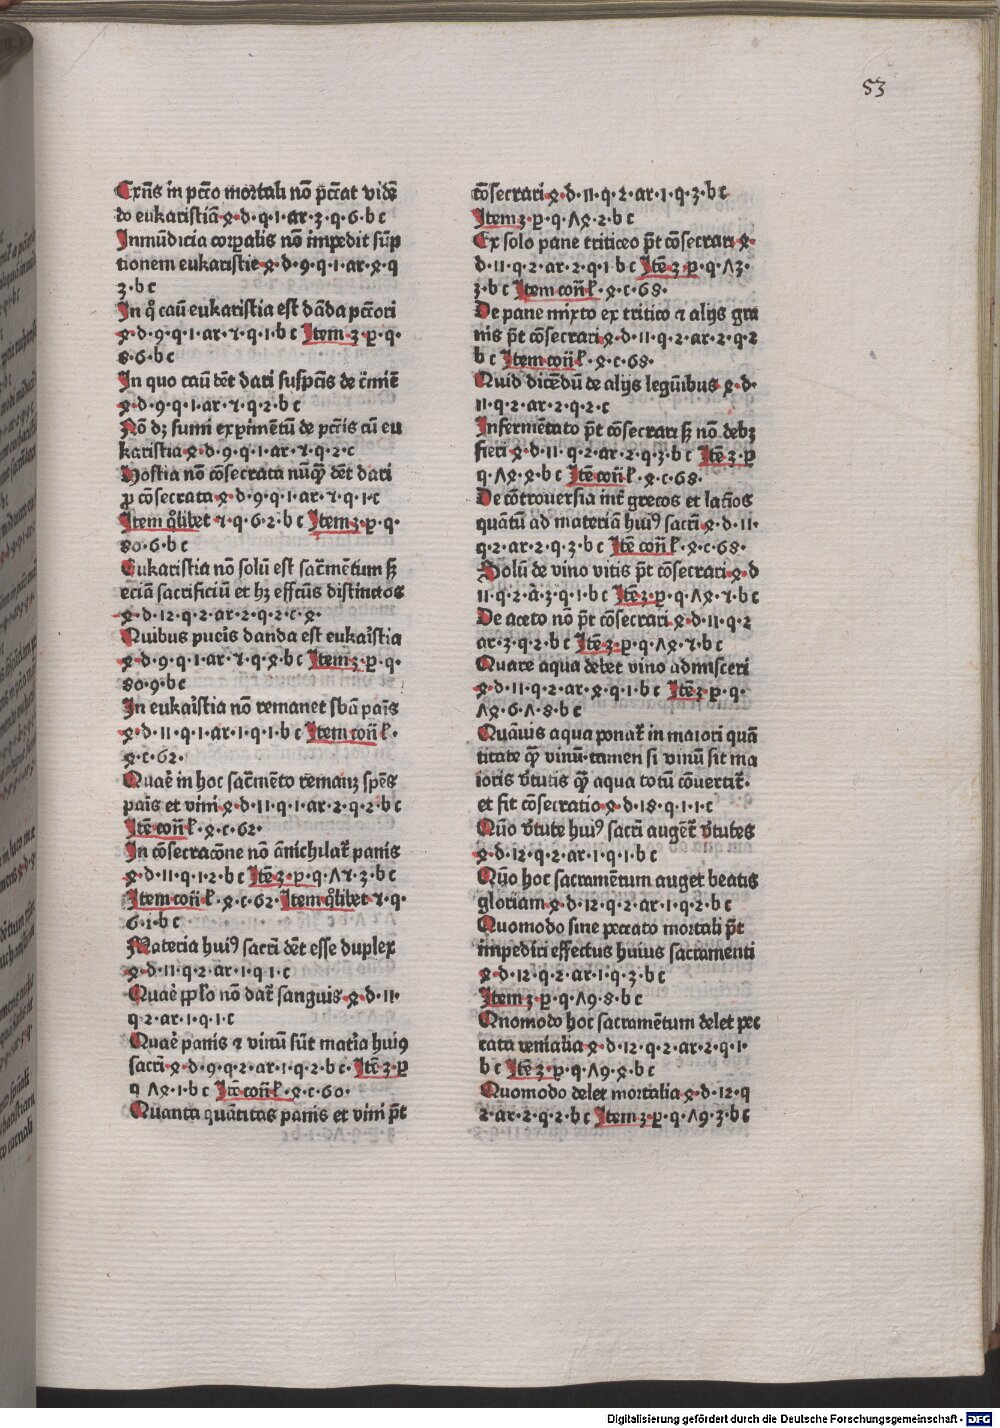 53
Exñs in pctõ mortali nõ p̃ccat vidẽ
do eukaristiã ꝝ·d·9·q·1·ar·3·q·6·b c
Inmũdicia corꝑalis nõ impedit sũp
tionem eukaristie ꝝ·d·9·q·1·ar·ꝝ·q
3·b c
In q̊ casũ eukaristia est dãda pctõri
ꝝ·d·9·q·1·ar·ꝛ·q·1·b c Item 3·p·q·
8·6·b c
In quo casũ dẽt dari suspctĩs de c̃mĩe
ꝝ·d·9·q·1·ar·ꝛ·q·2·b c
Nõ dꝫ sumi exꝑimẽtũ de pctĩs cũ eu
karistia ꝝ·d·9·q·1·ar·ꝛ·q·2·c
Hostia nõ cõsecrata nũq̃ dẽt dari
ꝓ cõsecrata ꝝ·d·9·q·1·ar·ꝛ·q·1·c
Item q̊libet ꝛ·q·6·2·b c Item 3·p·q·
80·6·b c
Eukaristia nõ solũ est sac̃mẽtum sꝫ
eciã sacrificiũ et hꝫ effectũs distinctos
ꝝ·d·12·q·2·ar·2·q·2·c·ꝝ·
Quibus pueĩs danda est eukaĩstia
ꝝ·d·9·q·1·ar·ꝛ·q·ꝝ·b c Item 3·p·q·
80·9·b c
In eukaĩstia nõ remanet sbã paĩs
ꝝ·d·11·q·1·ar·1·q·1·b c Item coñ l·
ꝝ·c·62·
Quaẽ in hoc sac̃mẽto remanꝫ spẽs
paĩs et vini ꝝ·d·11·q·1·ar·2·q·2·b c
Itẽ coñ l·ꝝ·c·62·
In cõsecracõne nõ ãnichilat̃ panis
ꝝ·d·11·q·1·2·b c Itẽ 3·p·q·Λꝛ·3·b c
Item coñ l·ꝝ·c·62·Item q̊libet ꝛ·q·
6·1·b c
Materia huiꝰ sacrĩ dẽt esse duplex
ꝝ·d·11·q·2·ar·1·q·1·c
Quaẽ ꝓpl'o nõ dat̃ sanguis ꝝ·d·11·
q·2·ar·1·q·1·c
Quaẽ panis ⁊ vinũ sũt mat̃ia huiꝰ
sacrĩ ꝝ·d·9·q·2·ar·1·q·2·b c·Itẽ 3·p
q·Λꝝ·1·b c Itẽ coñ l·ꝝ·c·60·
Quanta quãtitas panis et vini põt
cõsecrari ꝝ·d·11·q·2·ar·1·q·3·b c
Item 3·p·q·Λꝝ·2·b c
Ex solo pane triticeo põt cõsecrari ꝝ·
d·11·q·2·ar·2·q·1·b c Itẽ 3·p·q·Λ3·
3·b c Item coñ l·ꝝ·c·68·
De pane mixto ex tritico ⁊ alijs gra
nis põt cõsecrari ꝝ·d·11·q·2·ar·2·q·2
b c Item coñ l·ꝝ·c·68·
Quid dicẽdũ de alijs legũibus ꝝ·d·
11·q·2·ar·2·q·2·c
Infermẽtato põt cõsecrari sꝫ nõ debꝫ
fieri ꝝ·d·11·q·2·ar·2·q·3·b c Itẽ 3·p
q·Λꝝ·ꝝ·b c Itẽ coñ l·ꝝ·c·68·
De cõtrouersia int̃ grecos et latĩos
quãtũ ad materiã huiꝰ sacrĩ ꝝ·d·11·
q·2·ar·2·q·3·b c Itẽ coñ l·ꝝ·c·68·
Solũ de vino vitis põt cõsecrari ꝝ·d
11·q·2·a·3·q·1·b c Itẽ 3·p·q·Λꝝ·ꝛ·b c
De aceto nõ põt cõsecrari ꝝ·d·11·q·2
ar·3·q·2·b c Itẽ 3·p·q·Λꝝ·ꝛ·b c
Quare aqua debet vino admisceri
ꝝ·d·11·q·2·ar·ꝝ·q·1·b c Itẽ 3·p·q·
Λꝝ·6·Λ·8·b c
Quãuis aqua ponat̃ in maiori quã
titate q̃ vinũ·tamen si vinũ sit ma
ioris v̄tutis q̃ aqua totũ cõuertit̃·
et fit cõsecratio ꝝ·d·18·q·1·1·c
Quõ v̄tute huiꝰ sacrĩ augẽt̃ v̄tutes
ꝝ·d·12·q·2·ar·1·q·1·b c
Quõ hoc sacramẽtum auget beatis
gloriam ꝝ·d·12·q·2·ar·1·q·2·b c
Quomodo sine peccato mortali põt
impediri effectus huius sacramenti
ꝝ·d·12·q·2·ar·1·q·3·b c
Item 3·p·q·Λ9·8·b c
Qnomodo hoc sacramẽtum delet pec
cata venialia ꝝ·d·12·q·2·ar·2·q·1·
b c Itẽ 3·p·q·Λ9·ꝝ·b c
Quomodo delet mortalia ꝝ·d·12·q
2·ar·2·q·2·b c Item 3·p·q·Λ9·3·b c
Digitalisierung gefördert durch die Deutsche Forschungsgemeinschaft - DFG